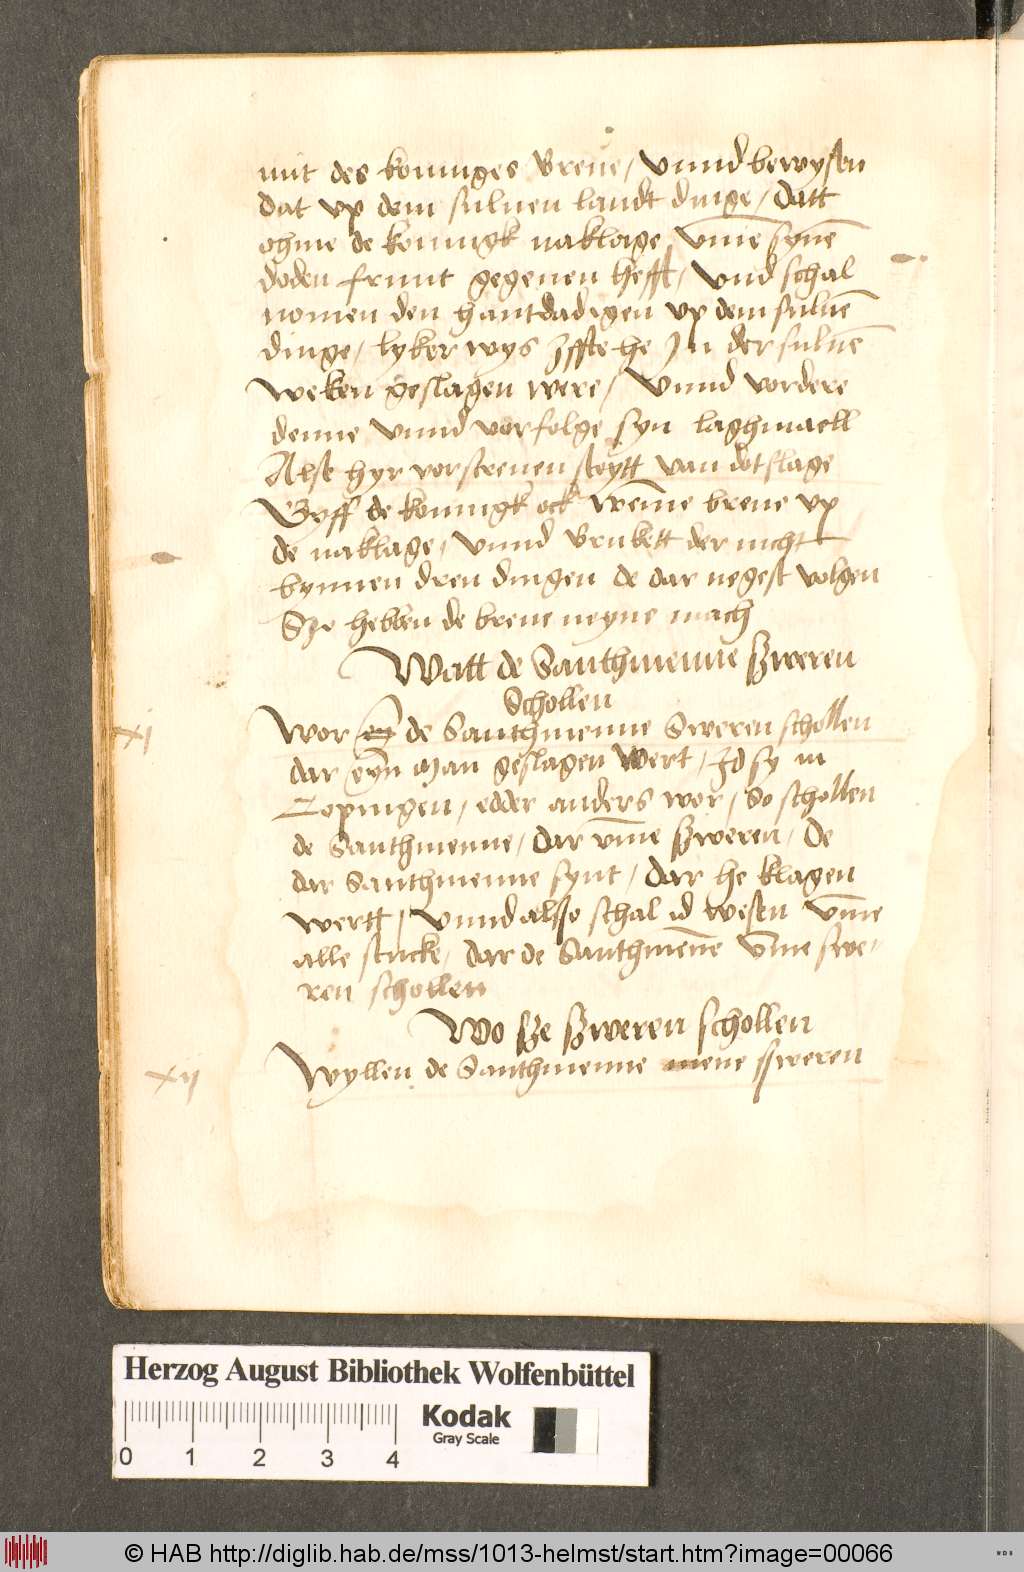 mit des koninges breue, vnnd bewysen
dat vp dem suluen landt dinge, datt
ohme de koningk naklage vm̄e synē
doden frunt gegeuen hefft, vnd schal
nomen den hantdadigen vp dem suluē
dinge, lyker wys Jffte he Jn der suluē
weken geslagen were, vnnd vordere
denne vnnd vorfolge syn laghmaell
Alse hyr vorscreuen steytt van dotslage
Gyff de koningk ock weme breue vp
de naklage, vnnd bruket der nicht
bynnen dren dingen de dar negest volgen
Sze hebben de breue neyne mach
Watt de Santhmenne szweren
Schollen
xj
Wor de Santhmenne Sweren schollen
dar eyn Man geslagen wert, Id sy in
Copingen, edder anders wor, So schollen
de Santhmenne, dar vm̄e szweren, de
dar Santhmenne synt, dar he klagen
wertt, vnnd alsso schal id wesen vm̄e
alle stucke, dar de Santhmēne vmme swe,
ren schollen
Wo sze szweren schollen
xij
Wyllen de Santhmenne mene ssweren
Herzog August Bibliothek Wolfenbüttel
Kodak
Gray Scale
0 1 2 3 4
© HAB http://diglib.hab.de/mss/1013-helmst/start.htm?image=00066